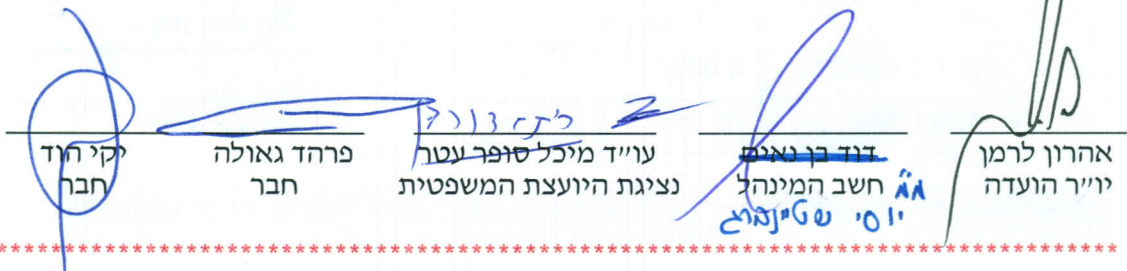 אהרון לרמן
יו״ר הועדה
דוד בן נאים
מ״מ חשב המינהל
יוסי שטיינברג
עו״ד מיכל סופר עטר
נציגת היועצת המשפטית
פרהד גאולה
חבר
יקי הוד
חבר
********************************************************************************